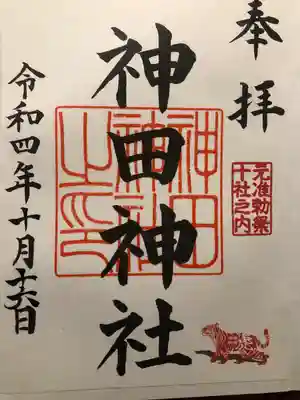 奉拝
元准勅祭
十社之内
神田神社
神田
神社
之印
令和四年十月十六日